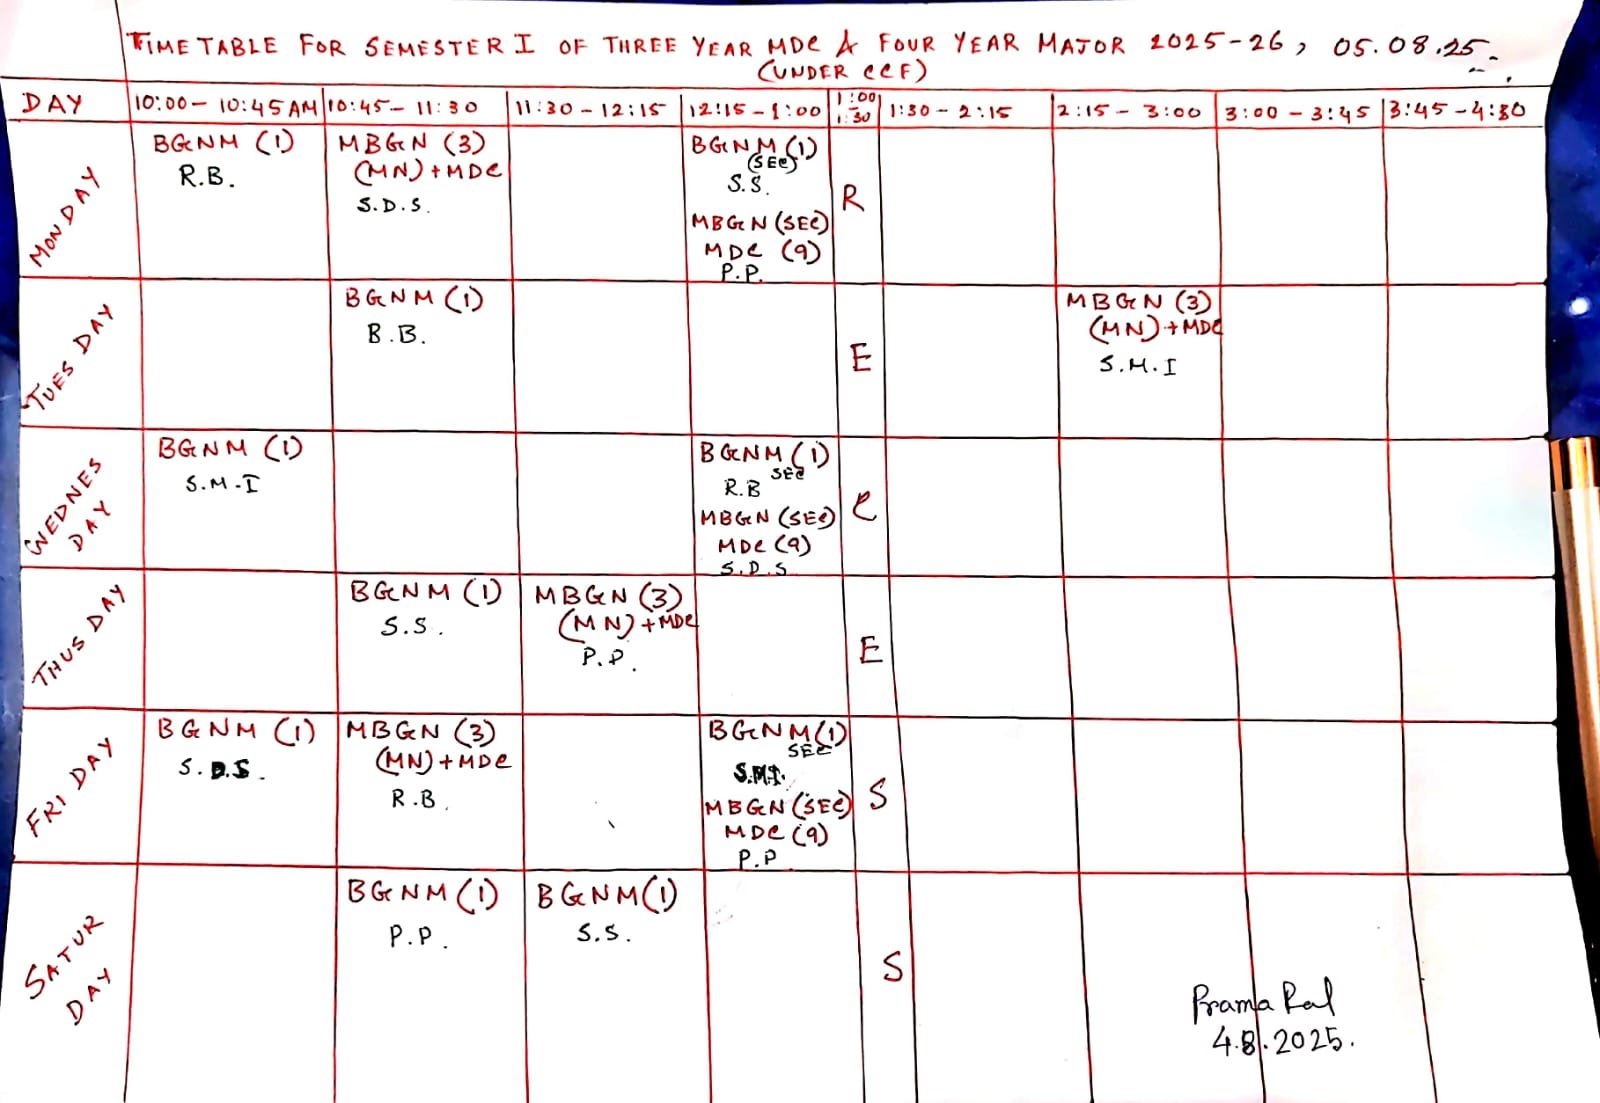 TIME TABLE FOR SEMESTER I OF THREE YEAR MDC & FOUR YEAR MAJOR 2025-26, 05.08.25.
(UNDER CCF)
DAY 10:00 - 10:45 AM 10:45 - 11:30 11:30 - 12:15 12:15 - 1:00 1:00 1:30 1:30 - 2:15 2:15 - 3:00 3:00 - 3:45 3:45 - 4:30
MONDAY
BGNM (1)
R.B.
MBGN (3)
(MN) + MDC
S.D.S.
BGNM (1)
(SEC)
S.S.
MBGN (SEC)
MDC (9)
P.P.
R
TUES DAY
BGNM (1)
B.B.
E
MBGN (3)
(MN) + MDC
S.M.I
WEDNES
DAY
BGNM (1)
S.M.I
BGNM (1)
SEC
R.B
MBGN (SEC)
MDC (9)
S.D.S
C
THUS DAY
BGNM (1)
S.S.
MBGN (3)
(MN) + MDC
P.P.
E
FRI DAY
BGNM (1)
S.D.S.
MBGN (3)
(MN) + MDC
R.B.
BGNM (1)
SEC
S.M.I.
MBGN (SEC)
MDC (9)
P.P
S
SATUR
DAY
BGNM (1)
P.P.
BGNM (1)
S.S.
S
Prama Pal
4.8.2025.